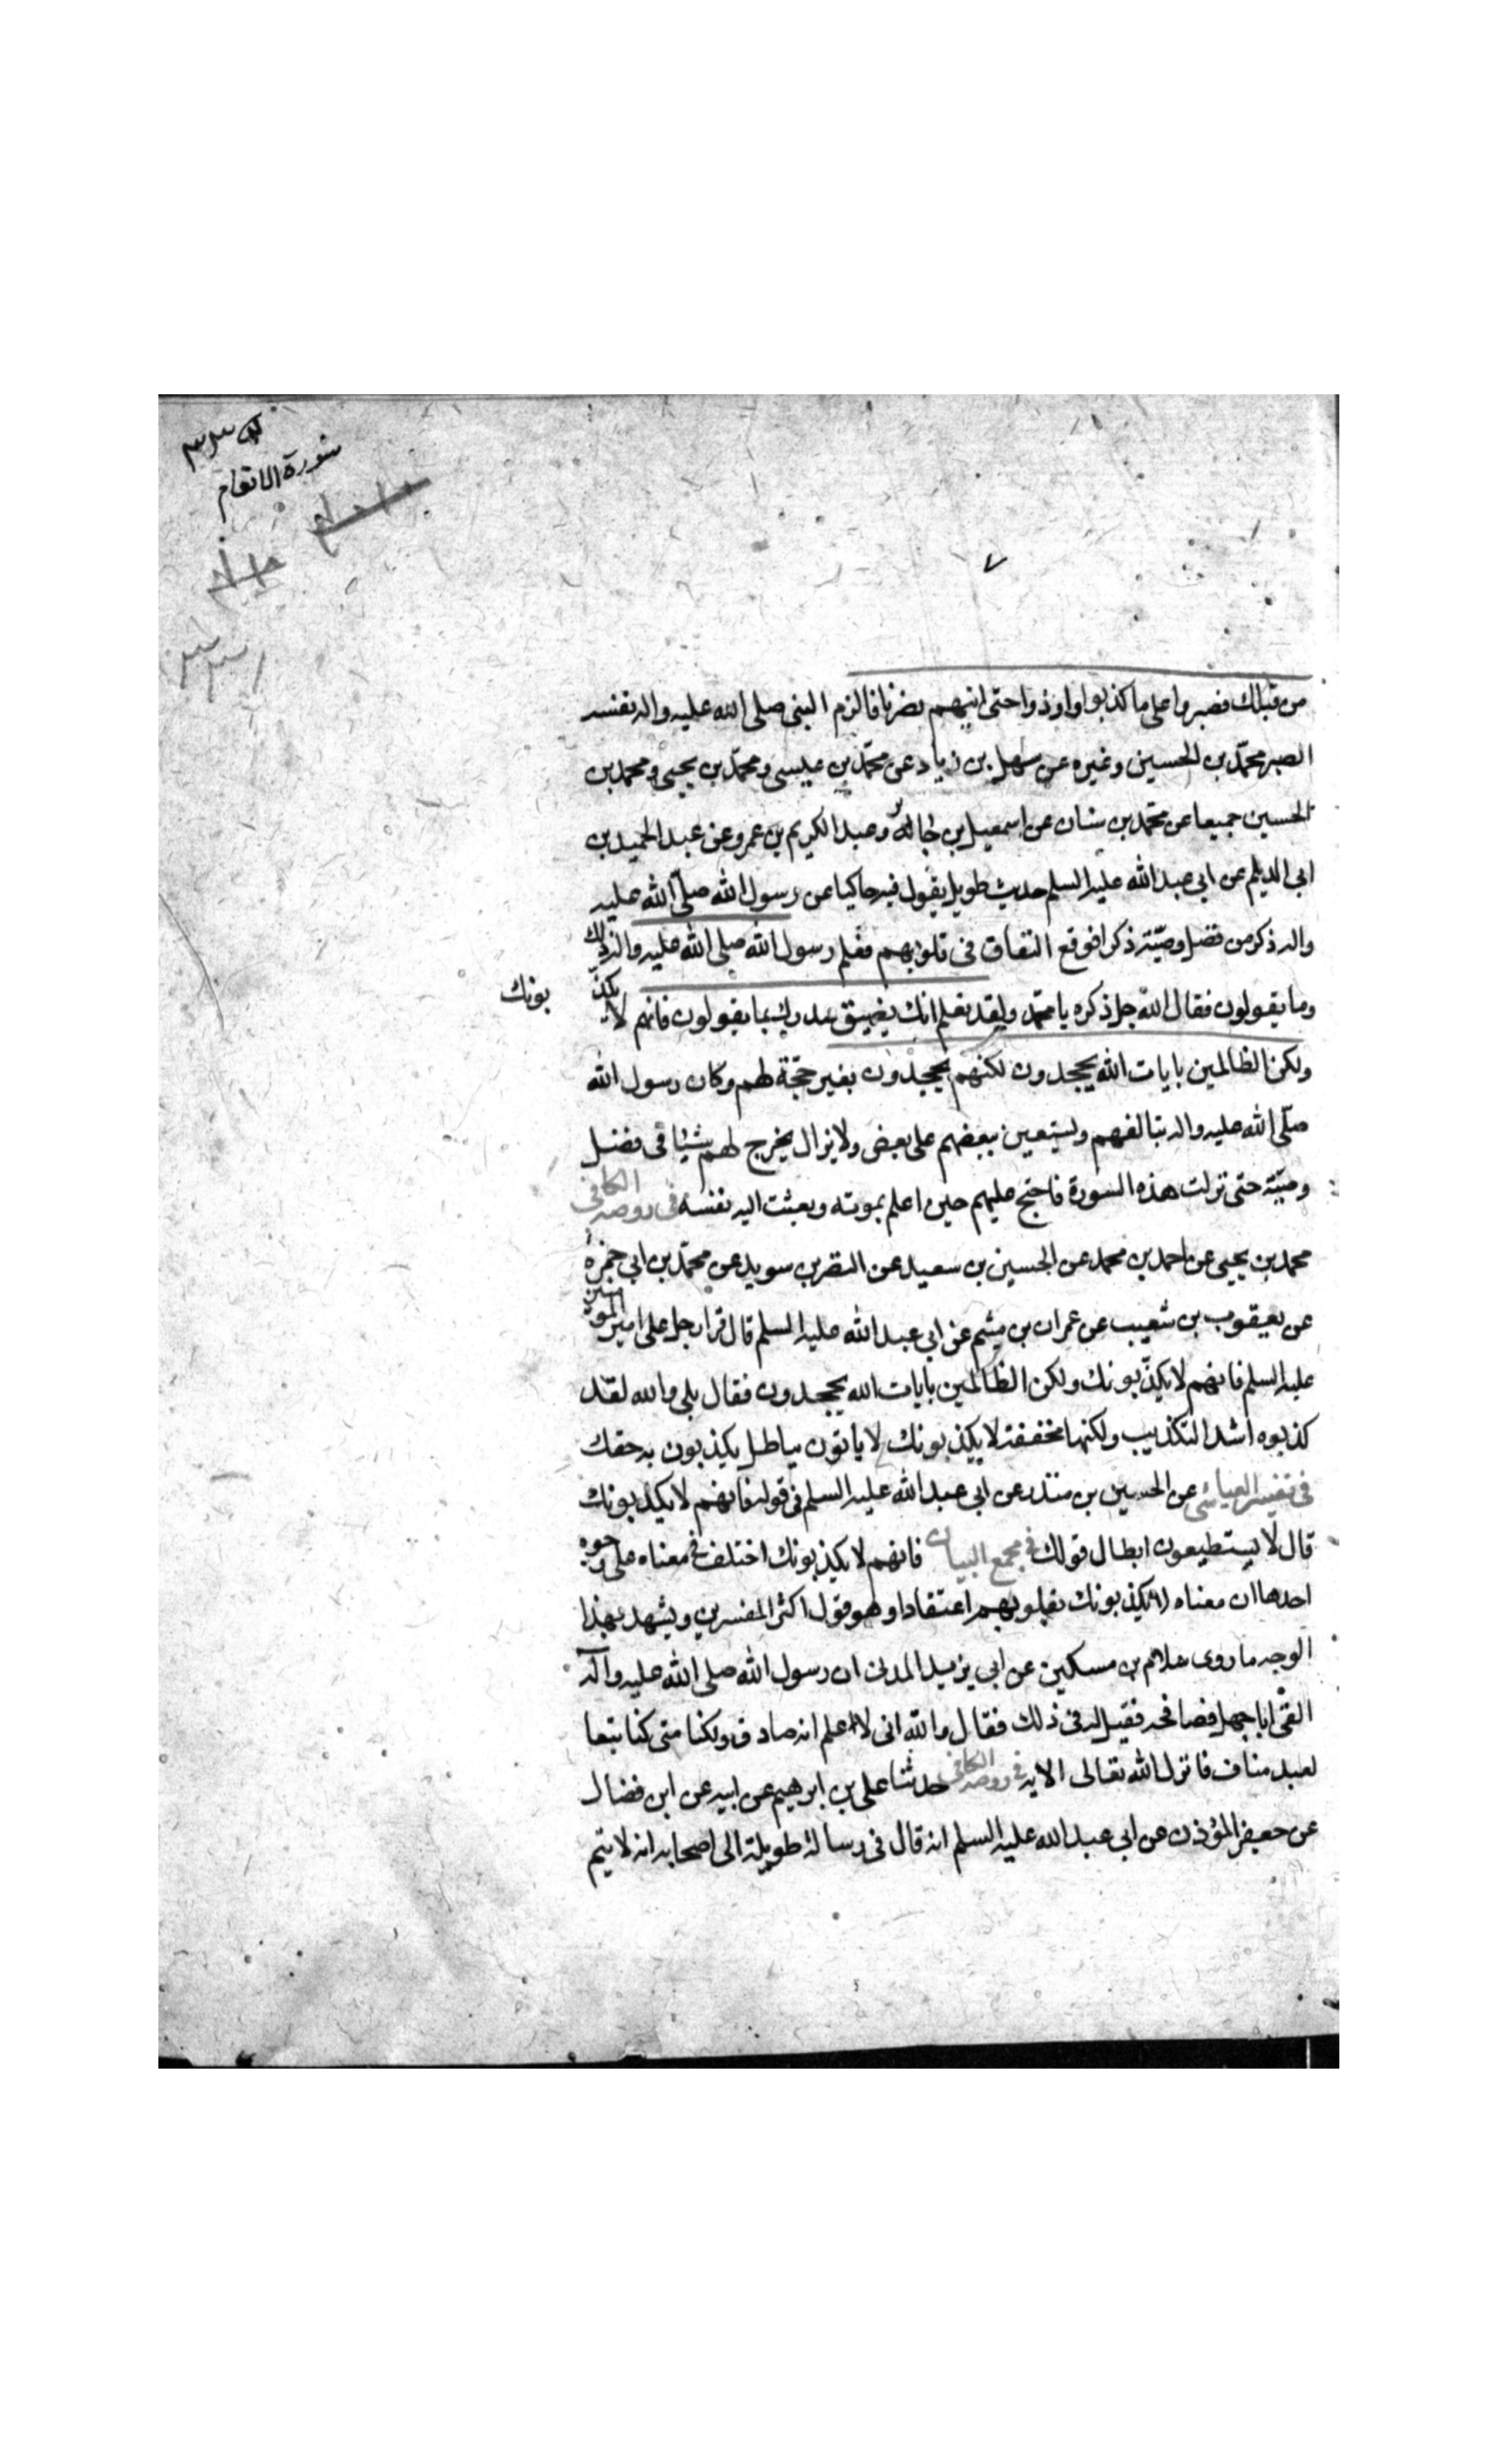 سورة الانعام
٧
من قبلك فصبروا على ما كذبوا واوذوا حتى اتيهم نصرنا فالزم النبى صلى الله عليه واله نفسه
الصبر محمّد بن الحسين وغيره عن سهل بن زياد عن محمّد بن عيسى ومحمّد بن يحيى ومحمد بن
الحسين جميعا عن محمّد بن سنان عن اسمعيل بن جابر وعبد الكريم بن عمرو عن عبد الحميد بن
ابى الديلم عن ابى عبد الله عليه السلم حديث طويل يقول فيه حاكيا عن رسول الله صلّى الله عليه
واله ذكر من فضل وصيّه ذكرا فوقع النفاق فى قلوبهم فعلم رسول الله صلى الله عليه واله ذلك
وما يقولون فقال الله جل ذكره يا محمّد ولقد نعلم انك يضيق صدرك بما يقولون فانهم لا يكذّ بونك
ولكن الظالمين بايات الله يجحدون لكنهم يجحدون بغير حجّة لهم وكان رسول الله
صلّى الله عليه واله يتالفهم ويستعين ببعضهم على بعض ولا يزال يخرج لهم شيئا فى فضل
وصيّه حتى نزلت هذه السورة فاحتج عليهم حين اعلم بموته ونعيت اليه نفسه فى روضه الكافى
محمد بن يحيى عن احمد بن محمد عن الحسين بن سعيد عن النضر بن سويد عن محمّد بن ابى حمزة
عن يعقوب بن شعيب عن عمران بن ميثم عن ابى عبد الله عليه السلم قال قرا رجل على امير المؤمنين
عليه السلم فانهم لا يكذّبونك ولكن الظالمين بايات الله يجحدون فقال بلى والله لقد
كذبوه اشد التكذيب ولكنها مخففة لا يكذبونك لا ياتون بباطل يكذبون به حقك
فى تفسير العياشى عن الحسين بن منذر عن ابى عبد الله عليه السلم فى قوله فانهم لا يكذبونك
قال لا يستطيعون ابطال قولك فى مجمع البيان فانهم لا يكذبونك اختلف فى معناه على وجوه
احدها ان معناه لا يكذبونك بقلوبهم اعتقادا وهو قول اكثر المفسرين ويشهد بهذا
الوجه ما روى سلام بن مسكين عن ابى يزيد المدنى ان رسول الله صلى الله عليه واله
القى ابا جهل فصافحه فقيل له فى ذلك فقال والله انى لا اعلم انه صادق ولكنا متى كنا تبعا
لعبد مناف فانزل الله تعالى الايه فى روضه الكافى حدثنا على بن ابرهيم عن ابيه عن ابن فضال
عن حفص المؤذن عن ابى عبد الله عليه السلم انه قال فى رسالة طويلة الى اصحابه انه لا يتم